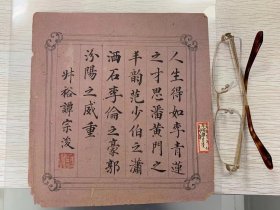 人生得如李青蓮
之才思潘黃門之
丰韵范少伯之瀟
洒石季倫之豪郭
汾陽之威重
叔裕譚宗浚